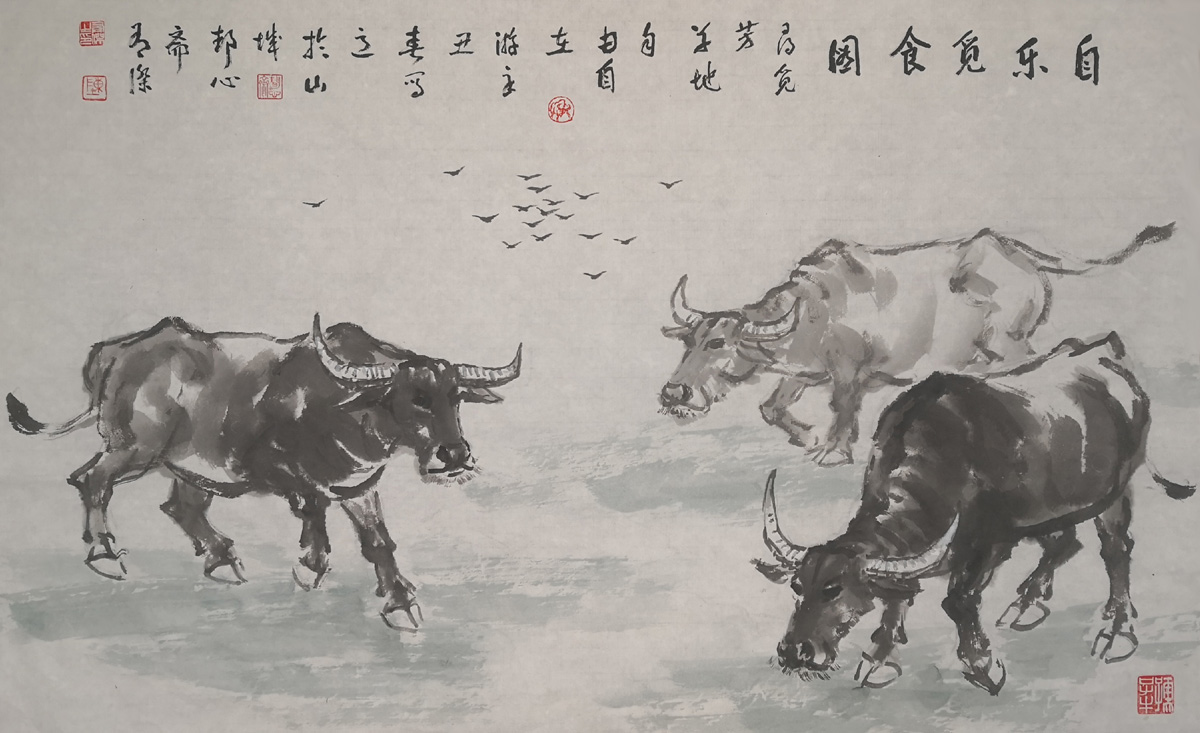 自乐觅食图
寻觅
芳
草地
自
由自
在
游辛
丑
春写
之
於山
城
心
斋